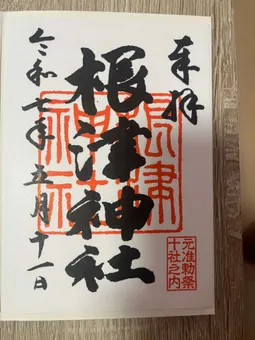 奉拝
根津神社
根津神社
元准勅祭
十社之内
令和七年五月十一日